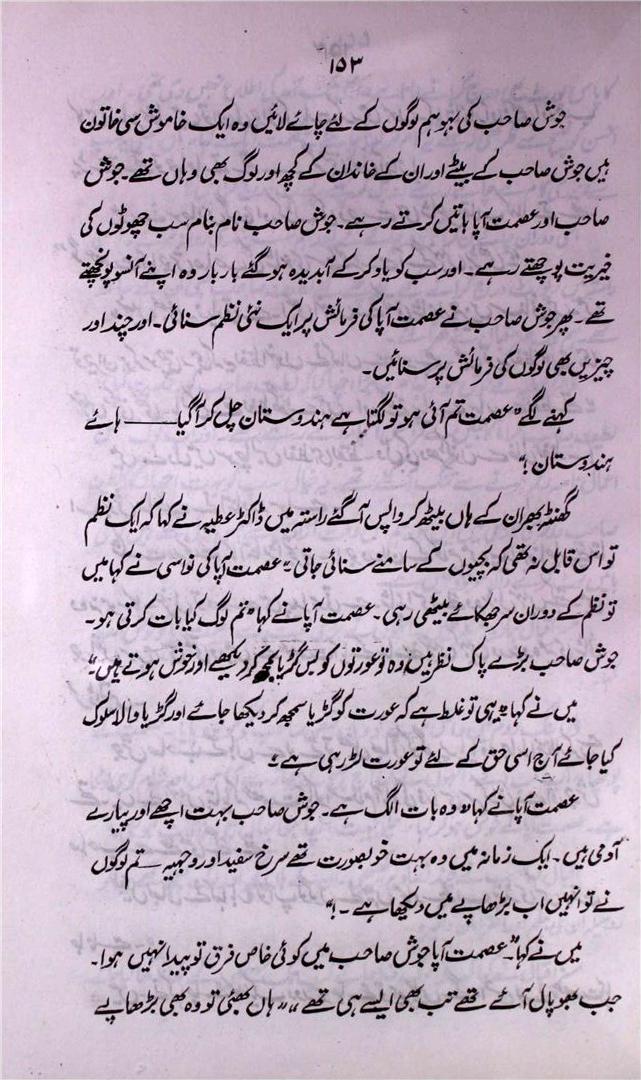 ۱۵۳
جوش صاحب کی بہو ہم لوگوں کے لئے چائے لائیں وہ ایک خاموش سی خاتون
ہیں جوش صاحب کے بیٹے اور ان کے خاندان کے کچھ اور لوگ بھی وہاں تھے۔ جوش
صاحب اور عصمت آپا باتیں کرتے رہے۔ جوش صاحب نام بنام سب چھوٹوں کی
خیریت پوچھتے رہے۔ اور سب کو یاد کر کے آبدیدہ ہو گئے بار بار وہ اپنے آنسو پونچھتے
تھے۔ پھر جوش صاحب نے عصمت آپا کی فرمائش پر ایک نئی نظم سنائی۔ اور چند اور
چیزیں بھی لوگوں کی فرمائش پر سنائیں۔
کہنے لگے "عصمت تم آئی ہو تو لگتا ہے ہندوستان چل کر آ گیا ــــــ ہائے
ہندوستان!"
گھنٹہ بھر ان کے ہاں بیٹھ کر واپس آ گئے راستہ میں ڈاکٹر عطیہ نے کہا کہ ایک نظم
تو اس قابل نہ تھی کہ بچیوں کے سامنے سنائی جاتی۔ عصمت آپا کی نواسی نے کہا میں
تو نظم کے دوران سر جھکائے بیٹھی رہی۔ عصمت آپا نے کہا "تم لوگ کیا بات کرتی ہو۔
جوش صاحب بڑے پاک نظر ہیں وہ تو عورتوں کو بس گڑیا سمجھ کر دیکھتے اور خوش ہوتے ہیں۔"
میں نے کہا "یہی تو غلط ہے کہ عورت کو گڑیا سمجھ کر دیکھا جائے اور گڑیا والا سلوک
کیا جائے آج اسی حق کے لئے تو عورت لڑ رہی ہے"
عصمت آپا نے کہا "وہ بات الگ ہے۔ جوش صاحب بہت اچھے اور پیارے
آدمی ہیں۔ ایک زمانہ میں وہ بہت خوبصورت تھے سرخ سفید اور وجہیہ ــ تم لوگوں
نے تو انہیں اب بڑھاپے میں دیکھا ہے۔!"
میں نے کہا "۔ عصمت آپا جوش صاحب میں کوئی خاص فرق تو پیدا نہیں ہوا۔
جب بھوپال آئے تھے تب بھی ایسے ہی تھے"، "ہاں بھئی تو وہ بھی بڑھاپے